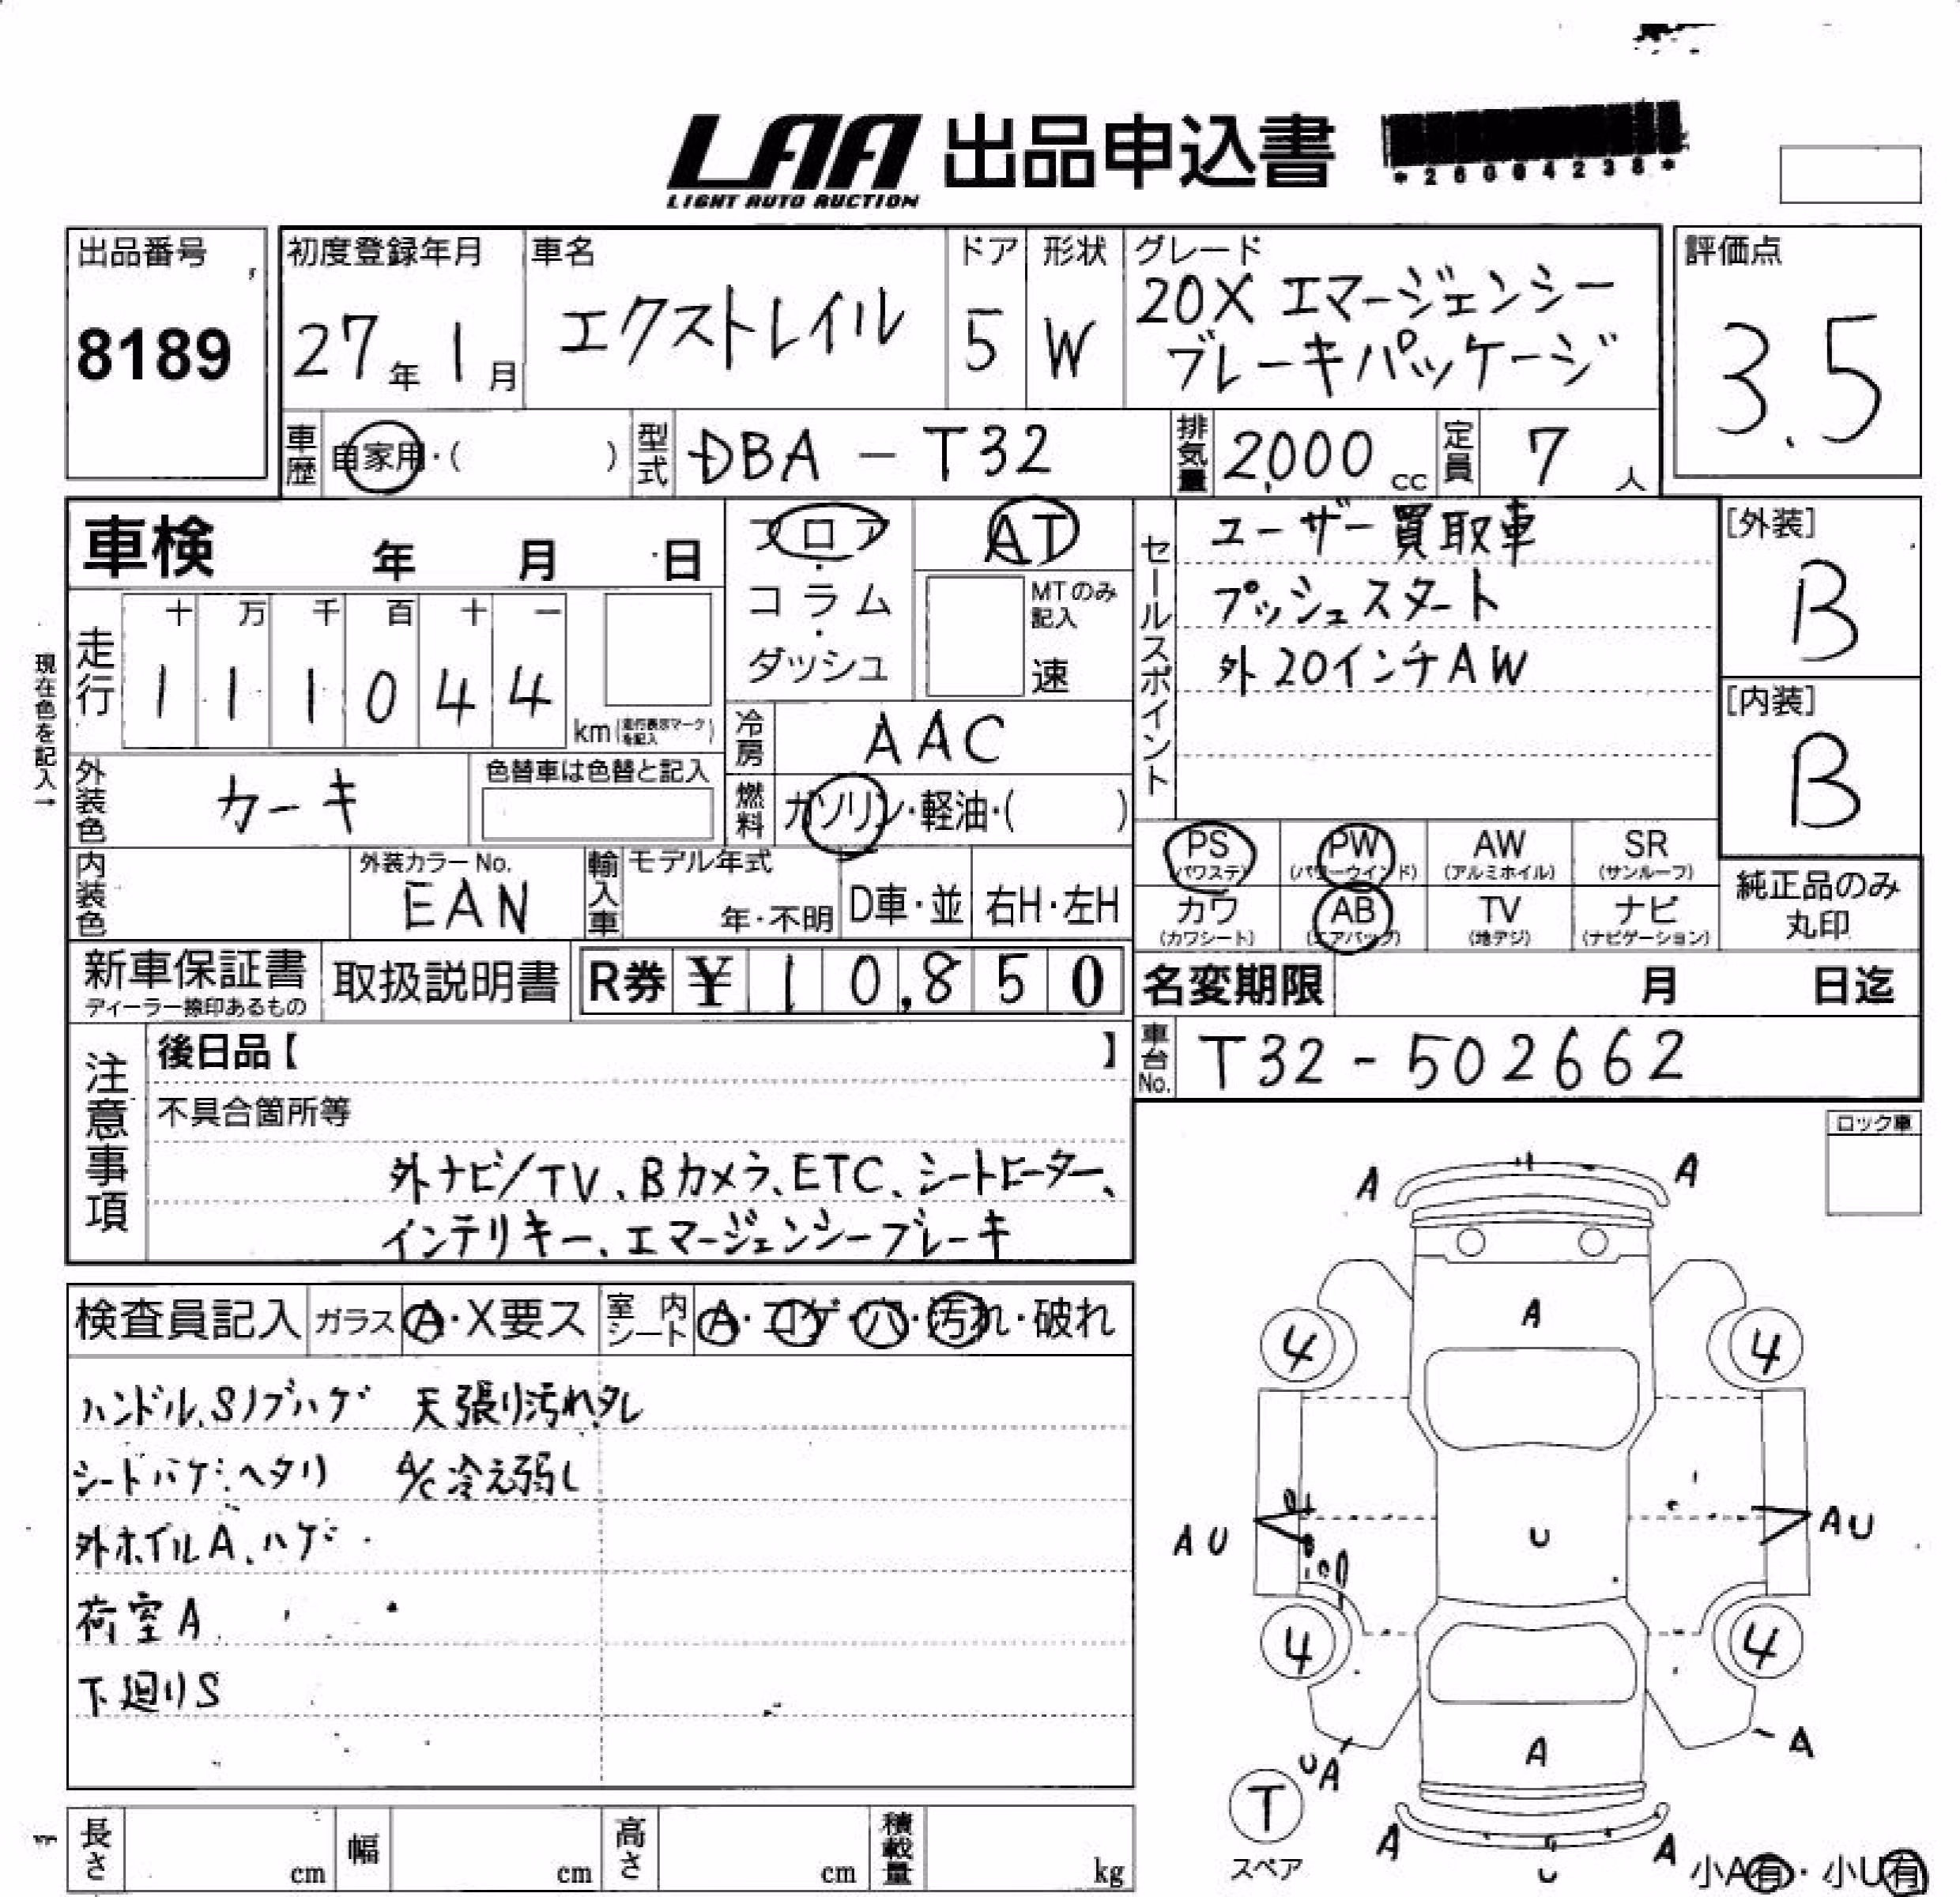 LAA 出品申込書
LIGHT AUTO AUCTION
*26004238*
出品番号
8189
初度登録年月
27年 1月
車名
エクストレイル
ドア
5
形状
W
グレード
20X エマージェンシー
ブレーキパッケージ
評価点
3.5
車歴
自家用・( )
型式
DBA - T32
排気量
2,000 cc
定員
7 人
車検 年 月 日
フロア・コラム・ダッシュ
AT
MTのみ記入
速
セールスポイント
ユーザー買取車
プッシュスタート
外20インチAW
[外装]
B
[内装]
B
現在色を記入→
走行
十 万 千 百 十 一
1 1 1 0 4 4
km(走行表示マークを記入)
冷房
AAC
外装色
カーキ
色替車は色替と記入
燃料
ガソリン・軽油・( )
内装色
外装カラーNo.
EAN
輸入車
モデル年式
年・不明
D車・並
右H・左H
PS (パワステ)
PW (パワーウインド)
AW (アルミホイル)
SR (サンルーフ)
カワ (カワシート)
AB (エアバック)
TV (地デジ)
ナビ (ナビゲーション)
純正品のみ
丸印
新車保証書
ディーラー捺印あるもの
取扱説明書
R券 ¥ 10,850
名変期限 月 日迄
車台No.
T32-502662
注意事項
後日品【 】
不具合箇所等
外ナビ/TV、Bカメラ、ETC、シートヒーター、
インテリキー、エマージェンシーブレーキ
ロック車
検査員記入
ガラス A・X要ス
室内シート A・コゲ・穴・汚れ・破れ
ハンドル、Sノブハゲ 天張り汚れ、タレ
シートハゲ、ヘタリ A/C冷え弱し
外ホイルA、ハゲ
荷室A
下廻りS
A A
A
4 4
AU U AU
4 4
UA A A
T
スペア
A U A
小A有・小U有
長さ cm
幅 cm
高さ cm
積載量 kg